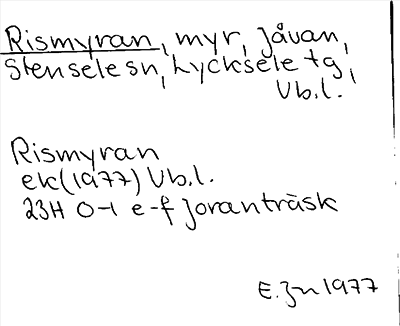 Rismyran, myr, Jåvan,
Stensele sn, Lycksele tg,
Vb.l.
Rismyran
ek (1977) Vb.l.
23H 0-1 e-f Joranträsk
E. Jn 1977